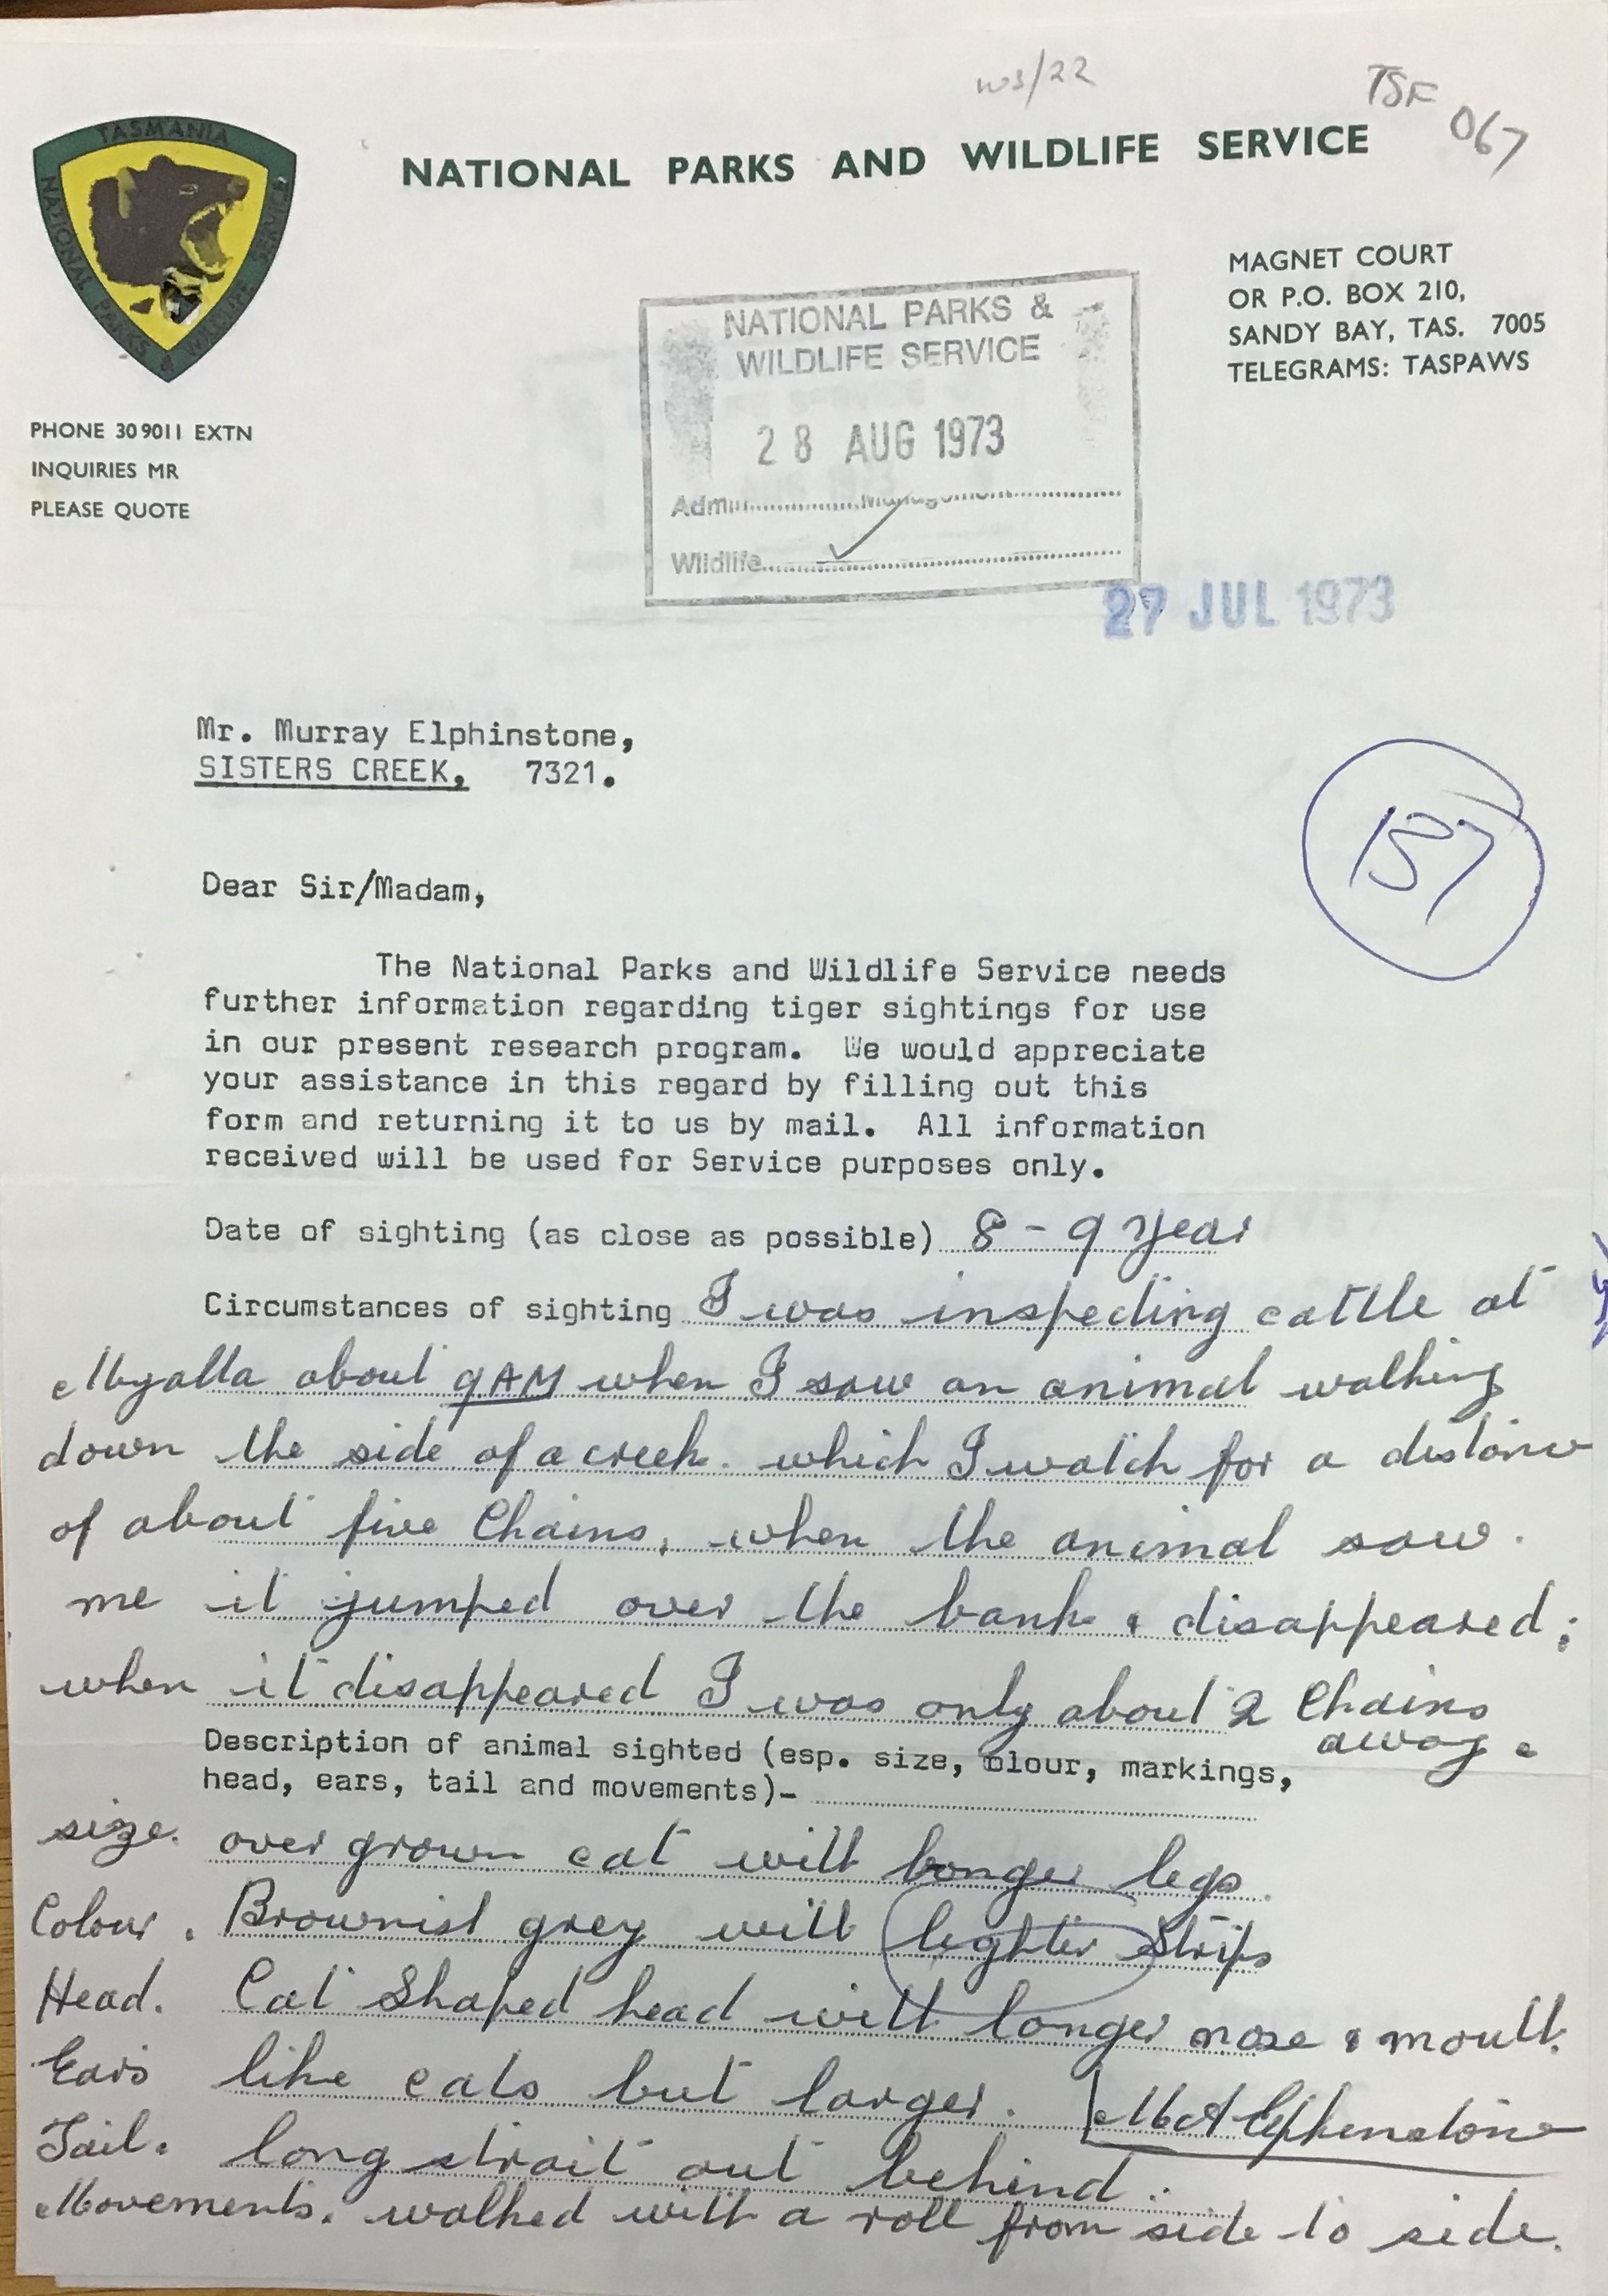 W3/22
TSF
067
TASMANIA
NATIONAL PARKS & WILDLIFE SERVICE
NATIONAL PARKS AND WILDLIFE SERVICE
MAGNET COURT
OR P.O. BOX 210,
SANDY BAY, TAS. 7005
TELEGRAMS: TASPAWS
PHONE 30 9011 EXTN
INQUIRIES MR
PLEASE QUOTE
NATIONAL PARKS &
WILDLIFE SERVICE
28 AUG 1973
Admin..............Management..............
Wildlife..............
27 JUL 1973
Mr. Murray Elphinstone,
SISTERS CREEK, 7321.
157
Dear Sir/Madam,
The National Parks and Wildlife Service needs
further information regarding tiger sightings for use
in our present research program. We would appreciate
your assistance in this regard by filling out this
form and returning it to us by mail. All information
received will be used for Service purposes only.
Date of sighting (as close as possible) 8 - 9 year
Circumstances of sighting I was inspecting cattle at
Myalla about 9AM when I saw an animal walking
down the side of a creek. which I watch for a distance
of about five Chains, when the animal saw.
me it jumped over the bank & disappeared;
when it disappeared I was only about 2 Chains
away.
Description of animal sighted (esp. size, olour, markings,
head, ears, tail and movements)-
size. over grown cat with longer legs.
Colour. Brownist grey with lighter Strips
Head. Cat Shaped head with longer nose & mouth.
Ears like cats but larger. M A Elphinstone
Tail. long strait out behind.
Movements. walked with a roll from side to side.